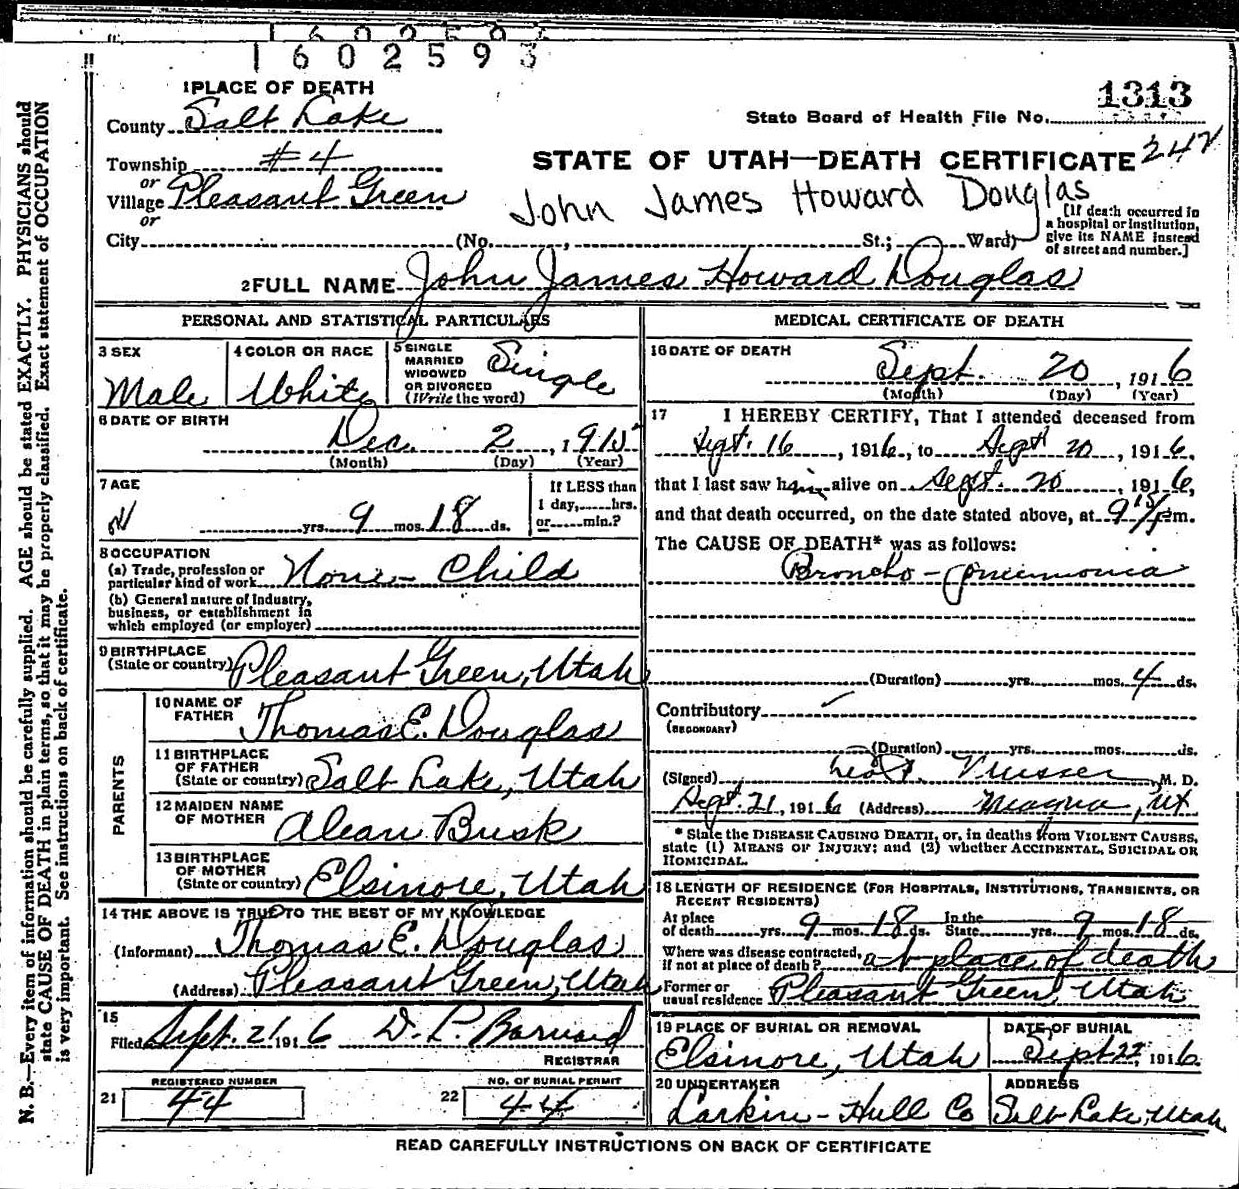 1602593
1 PLACE OF DEATH
1313
County Salt Lake
State Board of Health File No.
Township #4
STATE OF UTAH—DEATH CERTIFICATE 242
or
Village Pleasant Green
John James Howard Douglas
or
City (No. , St.; Ward)
[If death occurred in
a hospital or institution,
give its NAME instead
of street and number.]
2 FULL NAME John James Howard Douglas
PERSONAL AND STATISTICAL PARTICULARS
3 SEX
Male
4 COLOR OR RACE
White
5 SINGLE
MARRIED
WIDOWED
OR DIVORCED
(Write the word)
Single
6 DATE OF BIRTH
Dec. 2, 1915
(Month) (Day) (Year)
7 AGE
yrs. 9 mos. 18 ds.
If LESS than
1 day, hrs.
or min.?
8 OCCUPATION
(a) Trade, profession or
particular kind of work None - Child
(b) General nature of Industry,
business, or establishment in
which employed (or employer)
9 BIRTHPLACE
(State or country) Pleasant Green, Utah
PARENTS
10 NAME OF
FATHER Thomas E. Douglas
11 BIRTHPLACE
OF FATHER
(State or country) Salt Lake, Utah
12 MAIDEN NAME
OF MOTHER Busk
13 BIRTHPLACE
OF MOTHER
(State or country) Elsinore, Utah
14 THE ABOVE IS TRUE TO THE BEST OF MY KNOWLEDGE
(Informant) Thomas E. Douglas
(Address) Pleasant Green, Utah
15
Filed Sept. 21 1916 D. P. Barnard
REGISTRAR
REGISTERED NUMBER
21 44
NO. OF BURIAL PERMIT
22 44
MEDICAL CERTIFICATE OF DEATH
16 DATE OF DEATH
Sept. 20, 1916
(Month) (Day) (Year)
17 I HEREBY CERTIFY, That I attended deceased from
Sept. 16, 1916, to Sept 20, 1916,
that I last saw him alive on Sept. 20, 1916,
and that death occurred, on the date stated above, at 9 15 p m.
The CAUSE OF DEATH* was as follows:
Broncho-pneumonia
(Duration) yrs. mos. 4 ds.
Contributory
(SECONDARY)
(Duration) yrs. mos. ds.
(Signed) Musser, M. D.
Sept. 21, 1916 (Address) Magna, Ut
* State the DISEASE CAUSING DEATH, or, in deaths from VIOLENT CAUSES,
state (1) MEANS OF INJURY; and (2) whether ACCIDENTAL, SUICIDAL OR
HOMICIDAL.
18 LENGTH OF RESIDENCE (FOR HOSPITALS, INSTITUTIONS, TRANSIENTS, OR
RECENT RESIDENTS)
At place
of death yrs. 9 mos. 18 ds. In the
State yrs. 9 mos. 18 ds.
Where was disease contracted,
if not at place of death? at place of death
Former or
usual residence Pleasant Green, Utah
19 PLACE OF BURIAL OR REMOVAL
Elsinore, Utah
DATE OF BURIAL
Sept 22, 1916
20 UNDERTAKER
Larkin-Hull Co
ADDRESS
Salt Lake, Utah
READ CAREFULLY INSTRUCTIONS ON BACK OF CERTIFICATE
N. B.—Every item of information should be carefully supplied. AGE should be stated EXACTLY. PHYSICIANS should
state CAUSE OF DEATH in plain terms, so that it may be properly classified. Exact statement of OCCUPATION
is very important. See instructions on back of certificate.